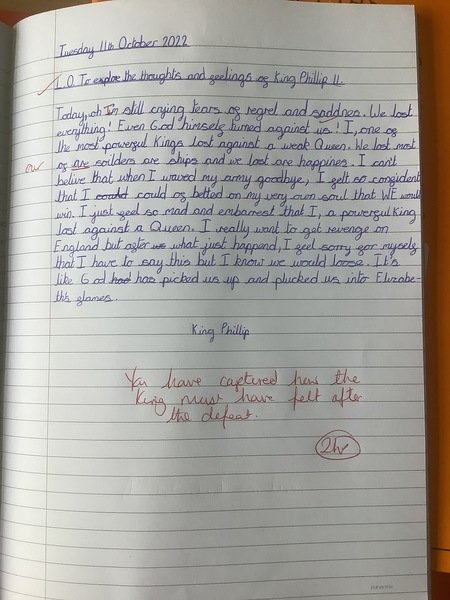 Tuesday 11th October 2022
L.O. To explore the thoughts and feelings of King Phillip II.
Today, oh I'm still crying tears of regret and saddnes. We lost
everything! Even God himself turned against us! I, one of
the most powerful Kings lost against a weak Queen. We lost most
our
of are soilders are ships and we lost are happines. I can't
belive that when I waved my army goodbye, I felt so confident
that I could could of betted on my very own soul that WE would
win. I just feel so mad and embarrest that I, a powerful King
lost against a Queen. I really want to get revenge on
England but after what just happend, I feel sorry for myself
that I have to say this but I know we would loose. It's
like God had has picked us up and plucked us into Elizabe-
th's flames.
King Phillip
You have captured how the
King must have felt after
the defeat.
2hr